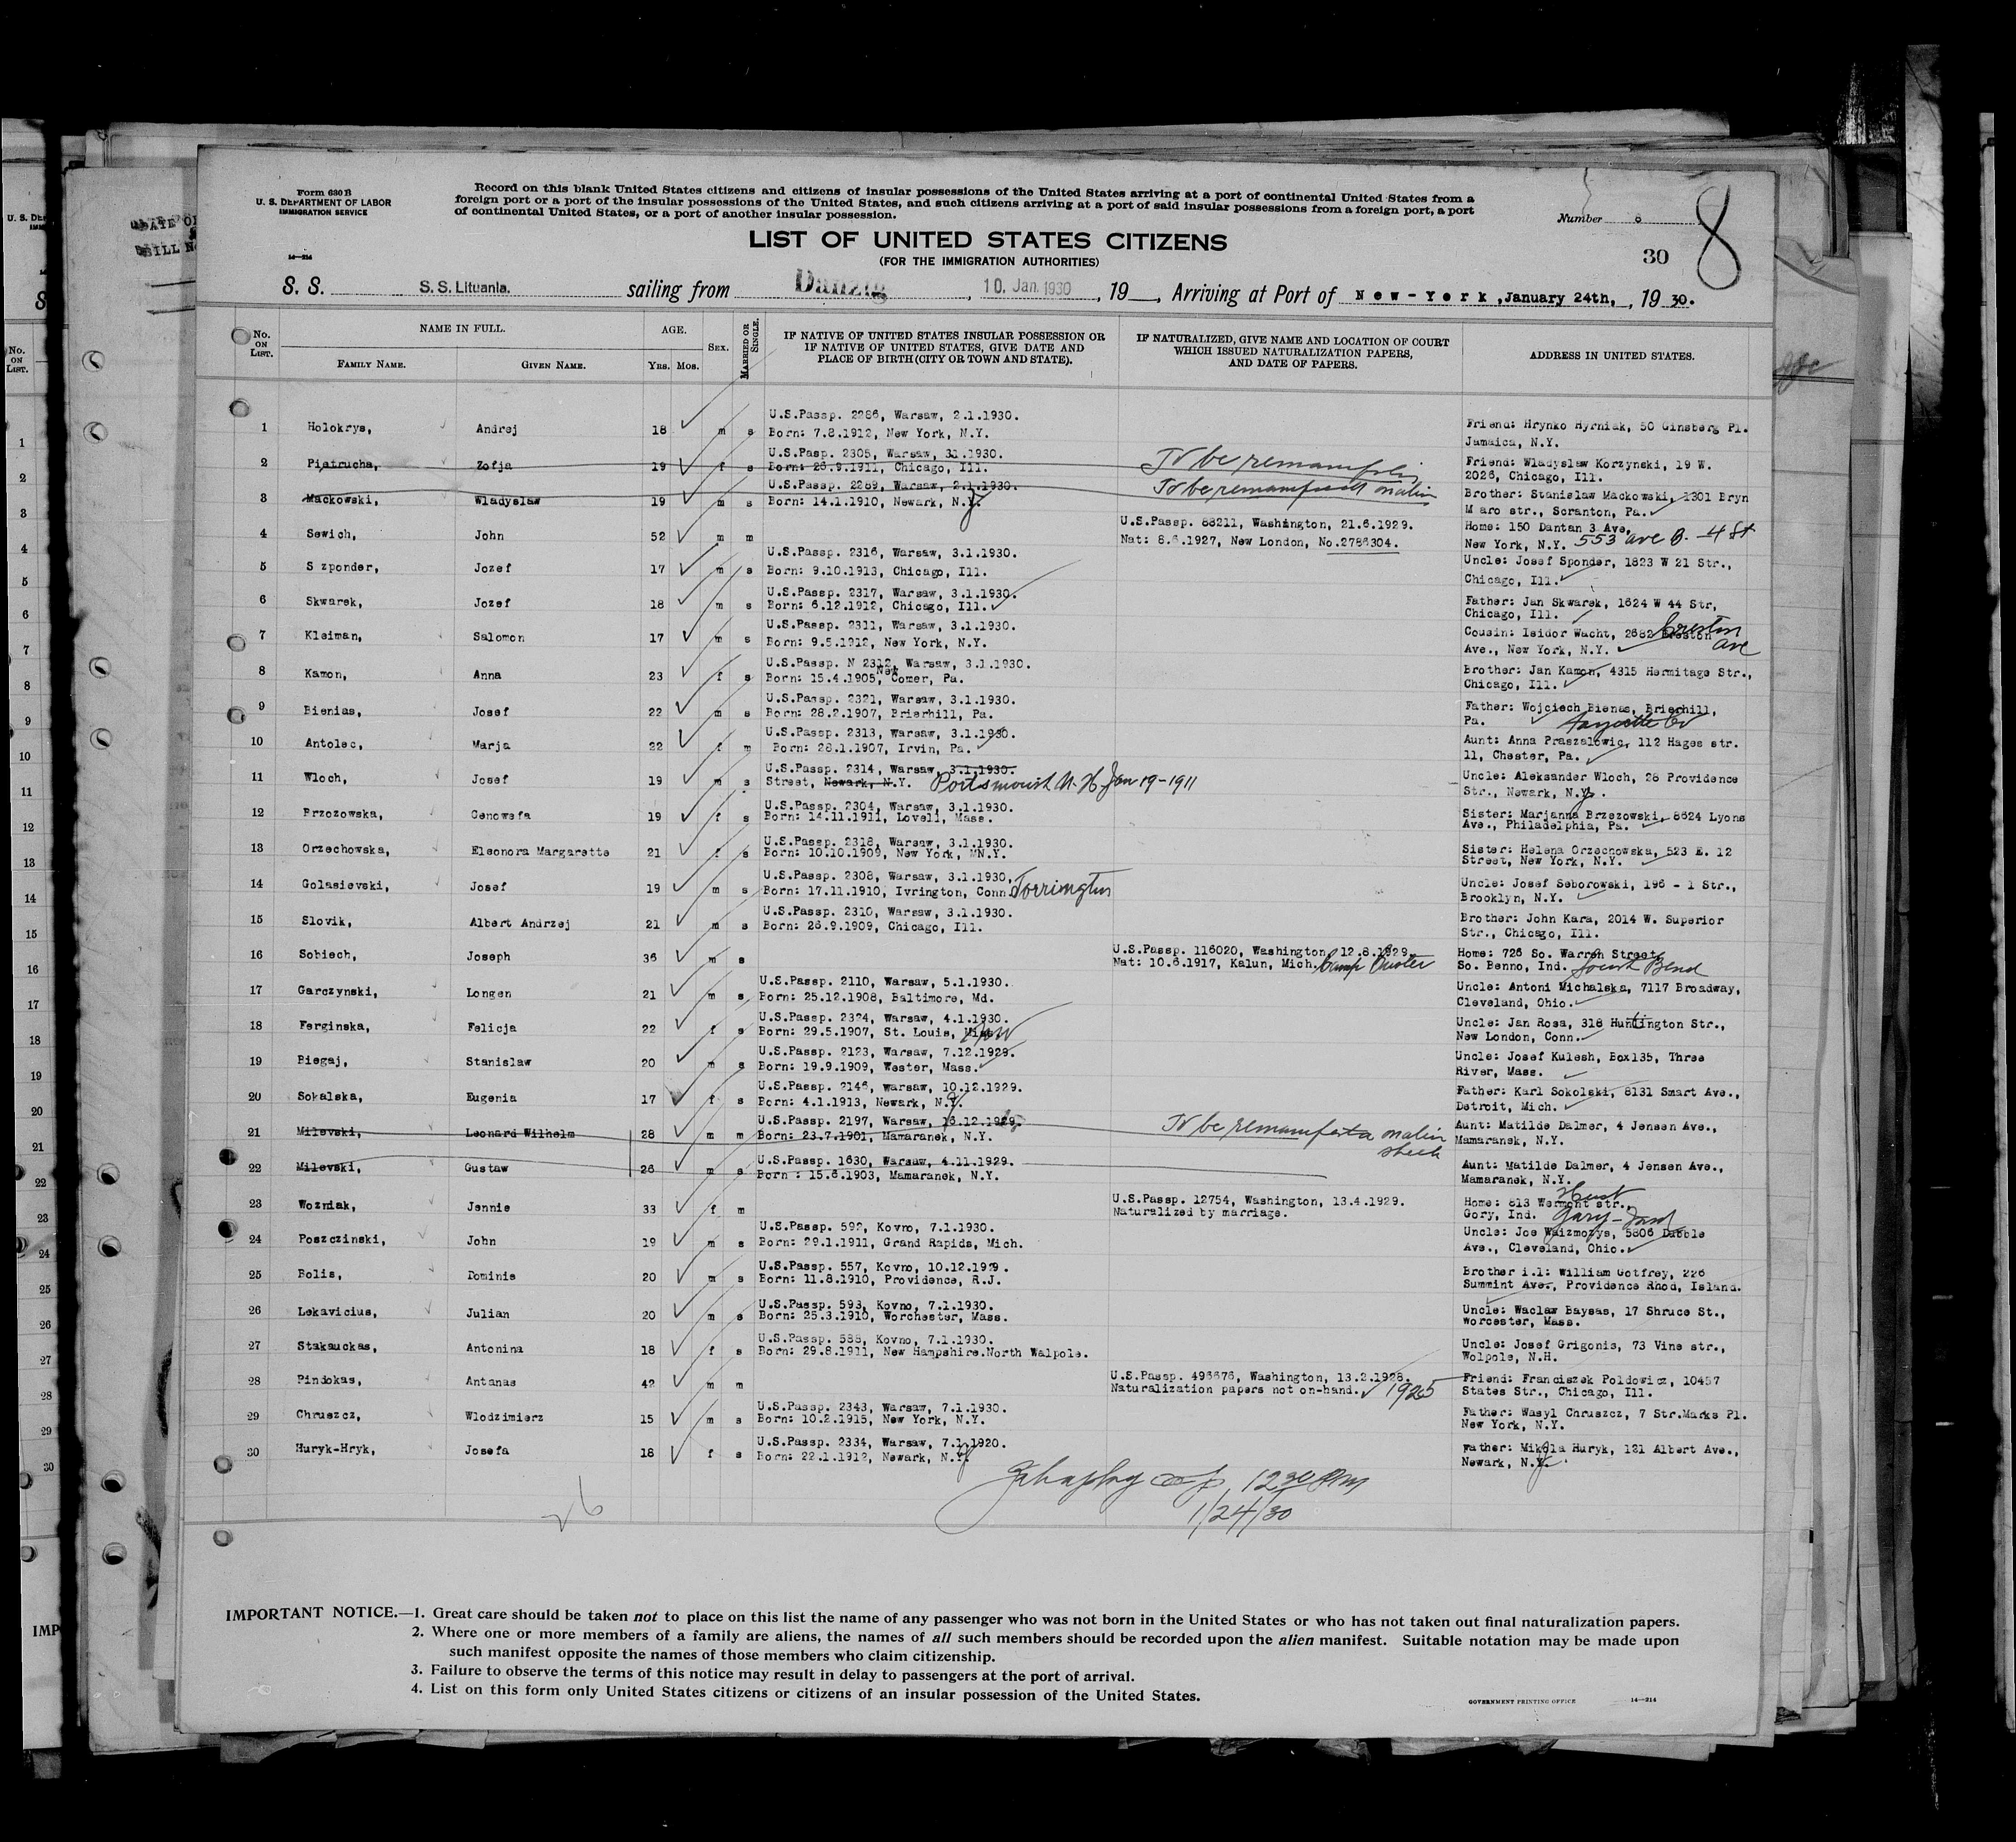 Form 630 B
U. S. DEPARTMENT OF LABOR
IMMIGRATION SERVICE
Record on this blank United States citizens and citizens of insular possessions of the United States arriving at a port of continental United States from a
foreign port or a port of the insular possessions of the United States, and such citizens arriving at a port of said insular possessions from a foreign port, a port
of continental United States, or a port of another insular possession.
Number 8
8
14-214
LIST OF UNITED STATES CITIZENS
(FOR THE IMMIGRATION AUTHORITIES)
30
S. S. S. S. Lituania. sailing from Danzig, 10. Jan. 1930, 19__, Arriving at Port of New-York, January 24th, , 19 30.
No. ON LIST. NAME IN FULL. FAMILY NAME. GIVEN NAME. AGE. YRS. MOS. SEX. MARRIED OR SINGLE. IF NATIVE OF UNITED STATES INSULAR POSSESSION OR IF NATIVE OF UNITED STATES, GIVE DATE AND PLACE OF BIRTH (CITY OR TOWN AND STATE). IF NATURALIZED, GIVE NAME AND LOCATION OF COURT WHICH ISSUED NATURALIZATION PAPERS, AND DATE OF PAPERS. ADDRESS IN UNITED STATES.
1 Holokrys, Andrej 18 m s U.S.Passp. 2286, Warsaw, 2.1.1930. Born: 7.8.1912, New York, N.Y. Friend: Hrynko Hyrniak, 50 Ginsberg Pl. Jamaica, N.Y.
2 Pietrucha, Zofja 19 f s U.S.Pasp. 2305, Warsaw, 31.1930. Born: 26.9.1911, Chicago, Ill. To be Friend: Wladyslaw Korzynski, 19 W. 2026, Chicago, Ill.
3 Mackowski, Wladyslaw 19 m s U.S.Passp. 2289, Warsaw, 2.1.1930. Born: 14.1.1910, Newark, N.Y. To be Brother: Stanislaw Mackowski, 1301 Bryn M aro str., Scranton, Pa.
4 Sewich, John 52 m m U.S.Passp. 88211, Washington, 21.6.1929. Nat: 8.6.1927, New London, No.2786304. Home: 150 Dantan 3 Ave, New York, N.Y. 553 ave B. - 4 St
5 S zponder, Jozef 17 m s U.S.Passp. 2316, Warsaw, 3.1.1930. Born: 9.10.1913, Chicago, Ill. Uncle: Josef Sponder, 1823 W 21 Str., Chicago, Ill.
6 Skwarek, Jozef 18 m s U.S.Passp. 2317, Warsaw, 3.1.1930. Born: 6.12.1912, Chicago, Ill. Father: Jan Skwarek, 1624 W 44 Str, Chicago, Ill.
7 Kleiman, Salomon 17 m s U.S.Passp. 2311, Warsaw, 3.1.1930. Born: 9.5.1912, New York, N.Y. Cousin: Isidor Wacht, 2682 Creston Ave Ave., New York, N.Y.
8 Kamon, Anna 23 f s U.S.Passp. N 2312, Warsaw, 3.1.1930. Born: 15.4.1905, New Comer, Pa. Brother: Jan Kamon, 4315 Hermitage Str., Chicago, Ill.
9 Bienias, Josef 22 m s U.S.Passp. 2321, Warsaw, 3.1.1930. Born: 28.2.1907, Brierhill, Pa. Father: Wojciech Bienas, Brierhill, Pa. Fayette Co
10 Antolec, Marja 22 f m U.S.Passp. 2313, Warsaw, 3.1.1930. Born: 28.1.1907, Irvin, Pa. Aunt: Anna Praszalowic, 112 Hages str. 11, Chester, Pa.
11 Wloch, Josef 19 m s U.S.Passp. 2314, Warsaw, 3.1.1930. Street, Newark, N.Y. Portsmouth N.H. Jan 19-1911 Uncle: Aleksander Wloch, 28 Providence Str., Newark, N.Y.
12 Brzozowska, Genowefa 19 f s U.S.Passp. 2304, Warsaw, 3.1.1930. Born: 14.11.1911, Lovell, Mass. Sister: Marjanna Brzezowski, 8624 Lyons Ave., Philadelphia, Pa.
13 Orzechowska, Eleonora Margarette 21 f s U.S.Passp. 2318, Warsaw, 3.1.1930. Born: 10.10.1909, New York, MN.Y. Sister: Helena Orzechowska, 523 E. 12 Street, New York, N.Y.
14 Golasievski, Josef 19 m s U.S.Passp. 2308, Warsaw, 3.1.1930. Born: 17.11.1910, Ivrington, Conn. Torrington Uncle: Josef Seborowski, 196 - 1 Str., Brooklyn, N.Y.
15 Slovik, Albert Andrzej 21 m s U.S.Passp. 2310, Warsaw, 3.1.1930. Born: 26.9.1909, Chicago, Ill. Brother: John Kara, 2014 W. Superior Str., Chicago, Ill.
16 Sobiech, Joseph 36 m s U.S.Passp. 116020, Washington, 12.8.1929. Nat: 10.6.1917, Kalun, Mich. Camp Custer Home: 726 So. Warren Street, So. Benno, Ind. South Bend
17 Garczynski, Longen 21 m s U.S.Passp. 2110, Warsaw, 5.1.1930. Born: 25.12.1908, Baltimore, Md. Uncle: Antoni Michalska, 7117 Broadway, Cleveland, Ohio.
18 Ferginska, Felicja 22 f s U.S.Passp. 2324, Warsaw, 4.1.1930. Born: 29.5.1907, St. Louis, Uncle: Jan Rosa, 318 Huntington Str., New London, Conn.
19 Biegaj, Stanislaw 20 m s U.S.Passp. 2123, Warsaw, 7.12.1929. Born: 19.9.1909, Wester, Mass. Uncle: Josef Kulesh, Box135, Three River, Mass.
20 Sokalska, Eugenia 17 f s U.S.Passp. 2146, Warsaw, 10.12.1929. Born: 4.1.1913, Newark, N.Y. Father: Karl Sokolski, 8131 Smart Ave., Detroit, Mich.
21 Milevski, Leonard Wilhelm 28 m m U.S.Passp. 2197, Warsaw, 16.12.1929. Born: 23.7.1901, Mamaranek, N.Y. To be sheet Aunt: Matilde Dalmer, 4 Jensen Ave., Mamaranek, N.Y.
22 Milevski, Gustaw 26 m s U.S.Passp. 1630, Warsaw, 4.11.1929. Born : 15.6.1903, Mamaranek, N.Y. Aunt: Matilde Dalmer, 4 Jensen Ave., Mamaranek, N.Y.
23 Wozniak, Jennie 33 f m U.S.Passp. 12754, Washington, 13.4.1929. Naturalized by marriage. Home: 813 Wermont str., Gory, Ind. Gary - Ind
24 Poszczinski, John 19 m s U.S.Passp. 592, Kovno, 7.1.1930. Born: 29.1.1911, Grand Rapids, Mich. Uncle: Joe Waizmozys, 5806 Dabble Ave., Cleveland, Ohio.
25 Bolis, Dominis 20 m s U.S.Passp. 557, Kovno, 10.12.1929. Born: 11.8.1910, Providence, R.J. Brother i.l: William Gotfrey, 226 Summint Aver, Providence Rhod, Island.
26 Lekavicius, Julian 20 m s U.S.Passp. 593, Kovno, 7.1.1930. Born: 25.3.1910, Worchester, Mass. Uncle: Waclaw Baysas, 17 Shruce St., Worcester, Mass.
27 Stakauckas, Antonina 18 f s U.S.Passp. 588, Kovno, 7.1.1930. Born: 29.8.1911, New Hampshire.North Walpole. Uncle: Josef Grigonis, 73 Vine str., Wolpole, N.H.
28 Pindokas, Antanas 42 m m U.S.Passp. 496676, Washington, 13.2.1928. Naturalization papers not on-hand. 1925 Friend: Franciszek Poldowicz, 10457 States Str., Chicago, Ill.
29 Chruszcz, Wlodzimierz 15 m s U.S.Passp. 2343, Warsaw, 7.1.1930. Born: 10.2.1915, New York, N.Y. Father: Wasyl Chruszcz, 7 Str.Marks Pl. New York, N.Y.
30 Huryk-Hryk, Josefa 18 f s U.S.Passp. 2334, Warsaw, 7.1.1920. Born: 22.1.1912, Newark, N.Y. Father: Mikola Huryk, 121 Albert Ave., Newark, N.Y.
12 30 PM
1/24/30
26
IMPORTANT NOTICE.—1. Great care should be taken not to place on this list the name of any passenger who was not born in the United States or who has not taken out final naturalization papers.
2. Where one or more members of a family are aliens, the names of all such members should be recorded upon the alien manifest. Suitable notation may be made upon
such manifest opposite the names of those members who claim citizenship.
3. Failure to observe the terms of this notice may result in delay to passengers at the port of arrival.
4. List on this form only United States citizens or citizens of an insular possession of the United States.
GOVERNMENT PRINTING OFFICE 14-214